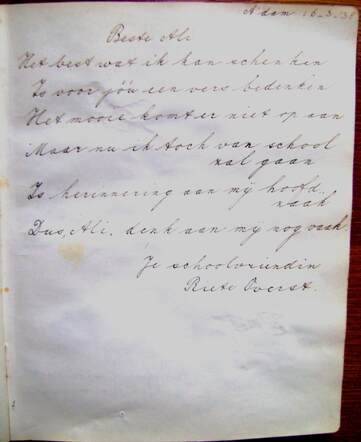 A'dam 16-3-'38
Beste Ali
Het best wat ik kan schenken
Is voor jóu een vers bedenken
Het mooie komt er niet op aan
Maar nu ik toch van school
zal gaan
Is herinnering aan mij hoofd-
zaak
Dus, Ali, denk aan mij nog vaak.
Je schoolvriendin
Riete Overst.